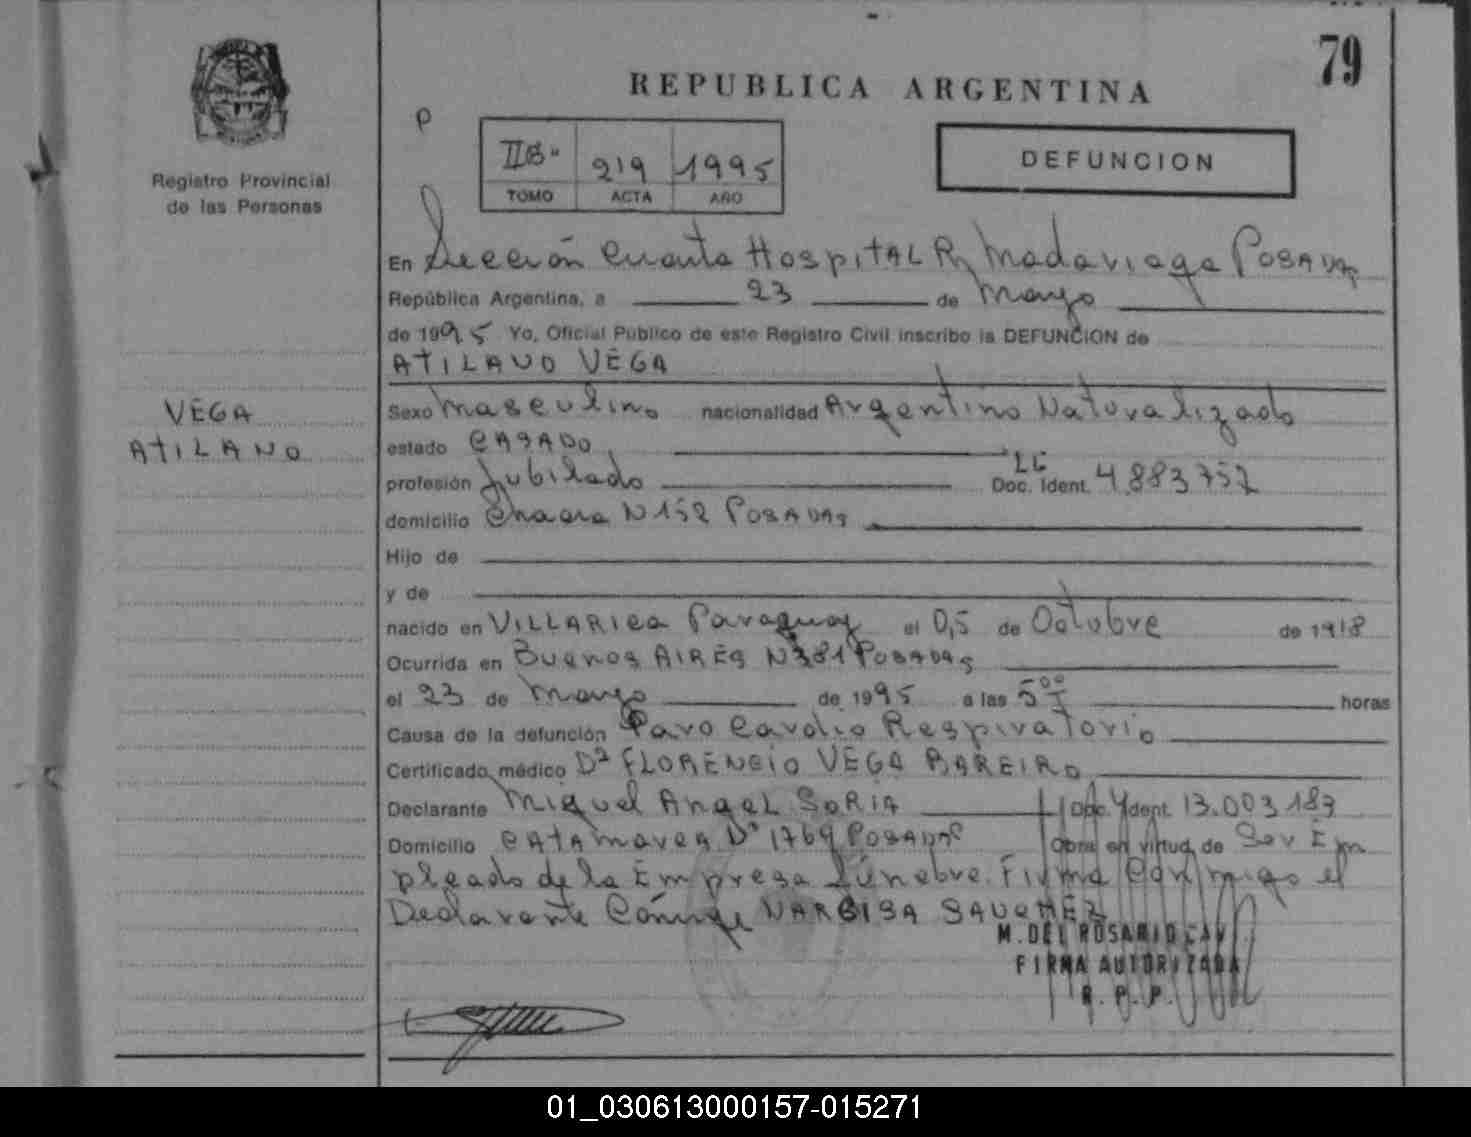 79
REPUBLICA ARGENTINA
P
Registro Provincial
de las Personas
IIB" 219 1995
TOMO ACTA AÑO
DEFUNCION
En Sección Cuarta Hospital R, Madariaga POSADAS
República Argentina, a 23 de Mayo
de 1995 Yo, Oficial Público de este Registro Civil inscribo la DEFUNCIÓN de
ATILANO VEGA
VEGA
ATILANO
Sexo Masculino nacionalidad Argentino Naturalizado
estado CASADO
profesión Jubilado Doc. Ident. 4.883.752
domicilio Chacra N 152 POSADAS
Hijo de
y de
nacido en VILLARICA Paraguay el 05 de Octubre de 1918
Ocurrida en BUENOS AIRES N 381 POSADAS
el 23 de Mayo de 1995 a las 5 00 horas
Causa de la defunción Paro Cardio Respiratorio
Certificado médico FLORENCIO VEGA BAREIRO
Declarante Miguel Angel SORIA Doc. Ydent. 13.003.183
Domicilio CATAMARCA Nº 1769 POSADAS Obra en virtud de Ser Em
pleado de la Empresa Fúnebre. Firma Conmigo el
Declarante Cónyuge NARCISA SANCHEZ
M. DEL ROSARIO
FIRMA AUTORIZADA
R. P. P.
01_030613000157-015271